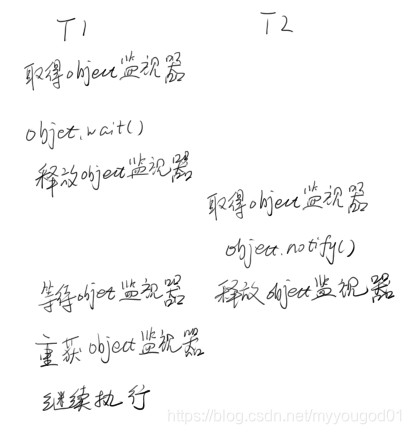 T1 T2
取得object监视器
objet.wait()
释放object监视器
取得object监视器
object.notify()
等待objet监视器 释放object监视器
重获object监视器
继续执行
https://blog.csdn.net/myyougod01